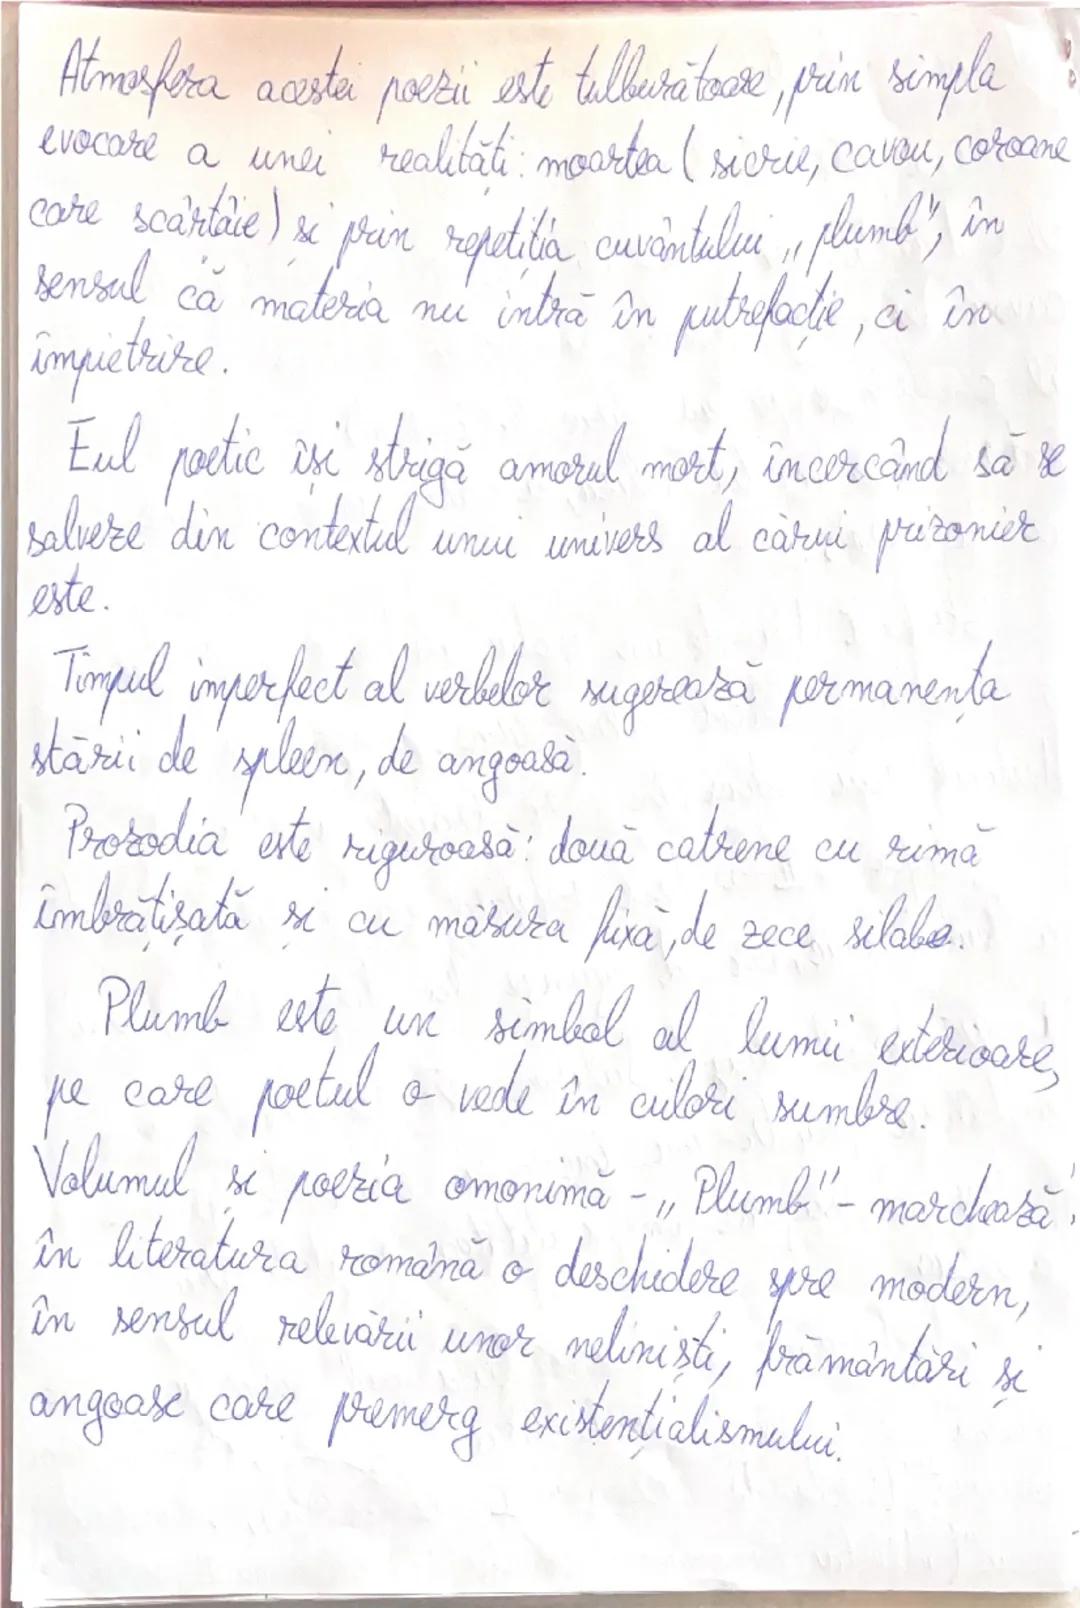 Atmosfera acestei poezii este tulburătoare, prin simpla
evocare a unei realități: moartea (sicrie, cavou, coroane
care scârțâie) și prin repetiția cuvântului „plumb”, în
sensul că materia nu intră în putrefacție, ci în
împietrire.
Eul poetic își strigă amorul mort, încercând să se
salveze din contextul unui univers al cărui prizonier
este.
Timpul imperfect al verbelor sugerează permanența
stării de spleen, de angoasă.
Prozodia este riguroasă: două catrene cu rimă
îmbrățișată și cu măsura fixă, de zece silabe.
Plumb este un simbol al lumii exterioare,
pe care poetul o vede în culori sumbre.
Volumul și poezia omonimă - „Plumb” - marchează
în literatura română o deschidere spre modern,
în sensul relevării unor neliniști, frământări și
angoase care premerg existențialismului.